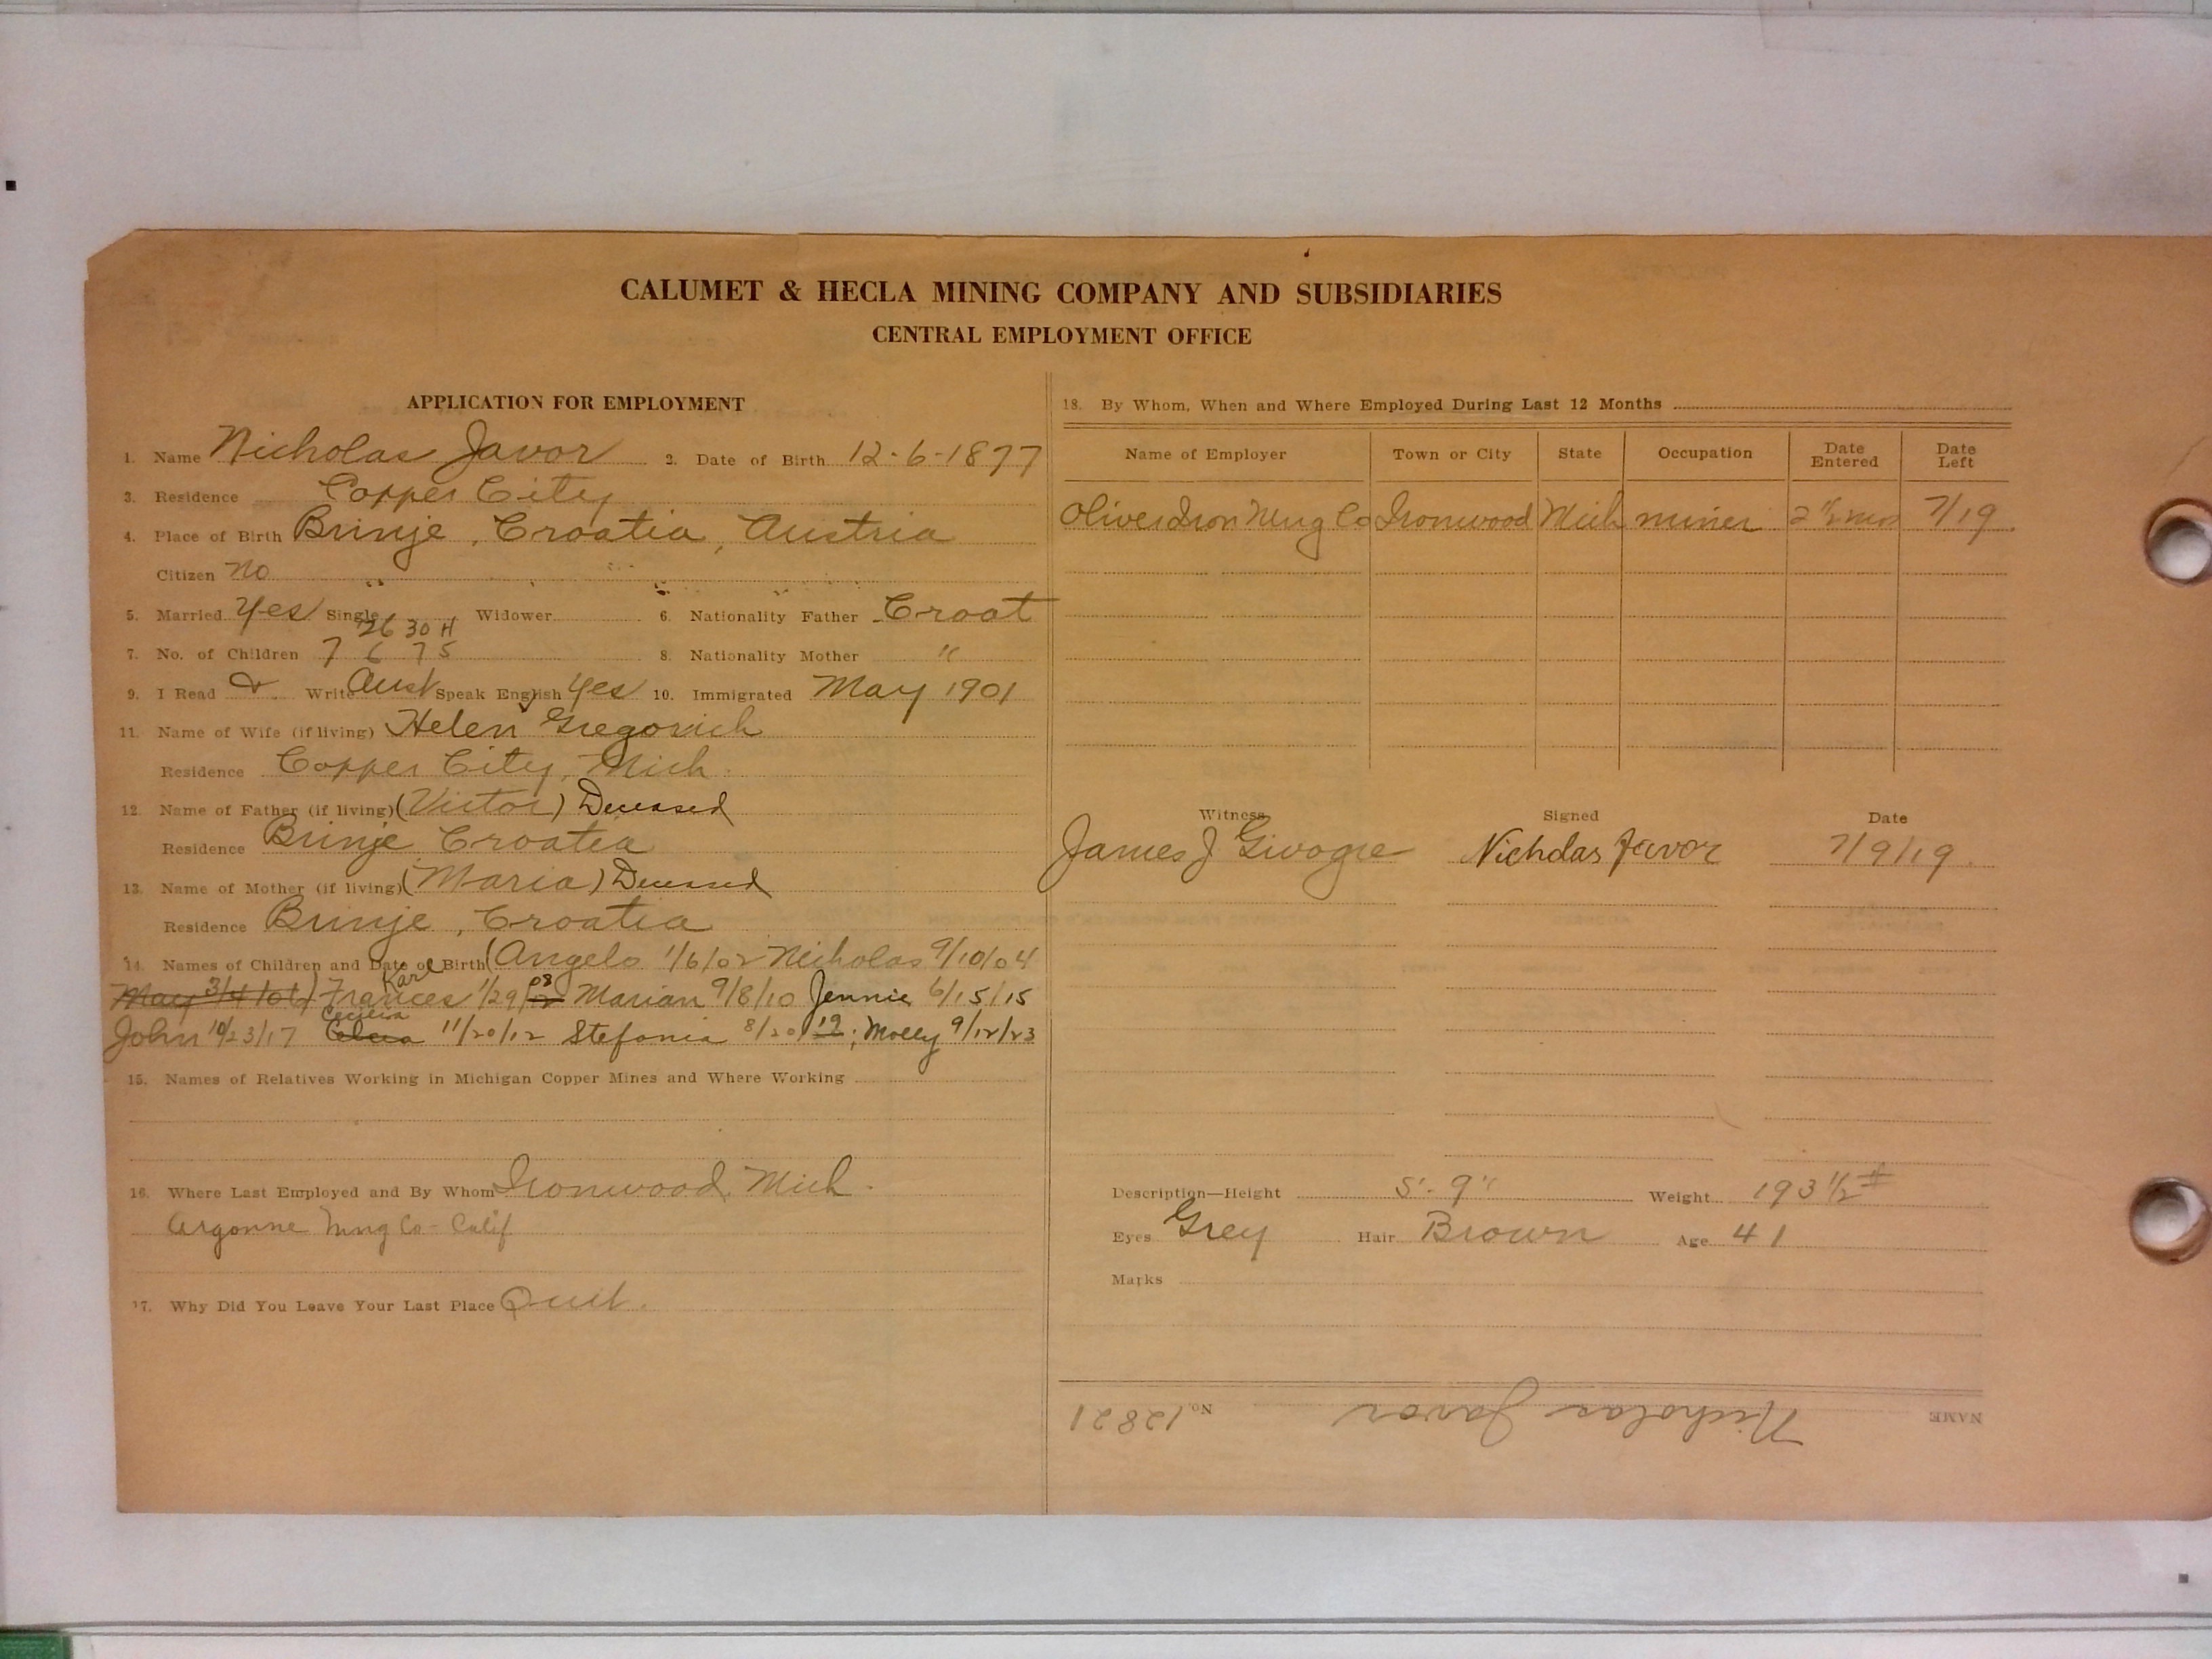 CALUMET & HECLA MINING COMPANY AND SUBSIDIARIES
CENTRAL EMPLOYMENT OFFICE
APPLICATION FOR EMPLOYMENT
1. Name Nicholas Javor 2. Date of Birth 12-6-1877
3. Residence Copper City
4. Place of Birth Brinje, Croatia, Austria
Citizen No
5. Married Yes Single Widower 6. Nationality Father Croat
26 30 H
7. No. of Children 7 6 7 5 8. Nationality Mother "
9. I Read & Write Aust Speak English Yes 10. Immigrated May 1901
11. Name of Wife (if living) Helen Gregorich
Residence Copper City, Mich.
12. Name of Father (if living) (Victor) Deceased
Residence Brinje Croatia
13. Name of Mother (if living) (Maria) Deceased
Residence Brinje, Croatia
14. Names of Children and Date of Birth (Angelo 1/6/02 Nicholas 9/10/04
Karl 08
May 3/4/06) Frances 1/29/12 Marian 9/8/10 Jennie 6/15/15
Cecilia
John 10/23/17 11/20/12 Stefania 8/20/19; Molly 9/12/23
15. Names of Relatives Working in Michigan Copper Mines and Where Working
16. Where Last Employed and By Whom Ironwood, Mich.
Argonne Mng Co - Calif
17. Why Did You Leave Your Last Place Quit.
18. By Whom, When and Where Employed During Last 12 Months
Name of Employer Town or City State Occupation Date Entered Date Left
Oliver Iron Mng Co Ironwood Mich miner 2 1/2 mos 7/19
Witness Signed Date
James J Nicholas Javor 7/9/19.
Description—Height 5'-9" Weight 193 1/2 #
Eyes Grey Hair Brown Age 41
Marks
NAME Nicholas Javor No. 12821